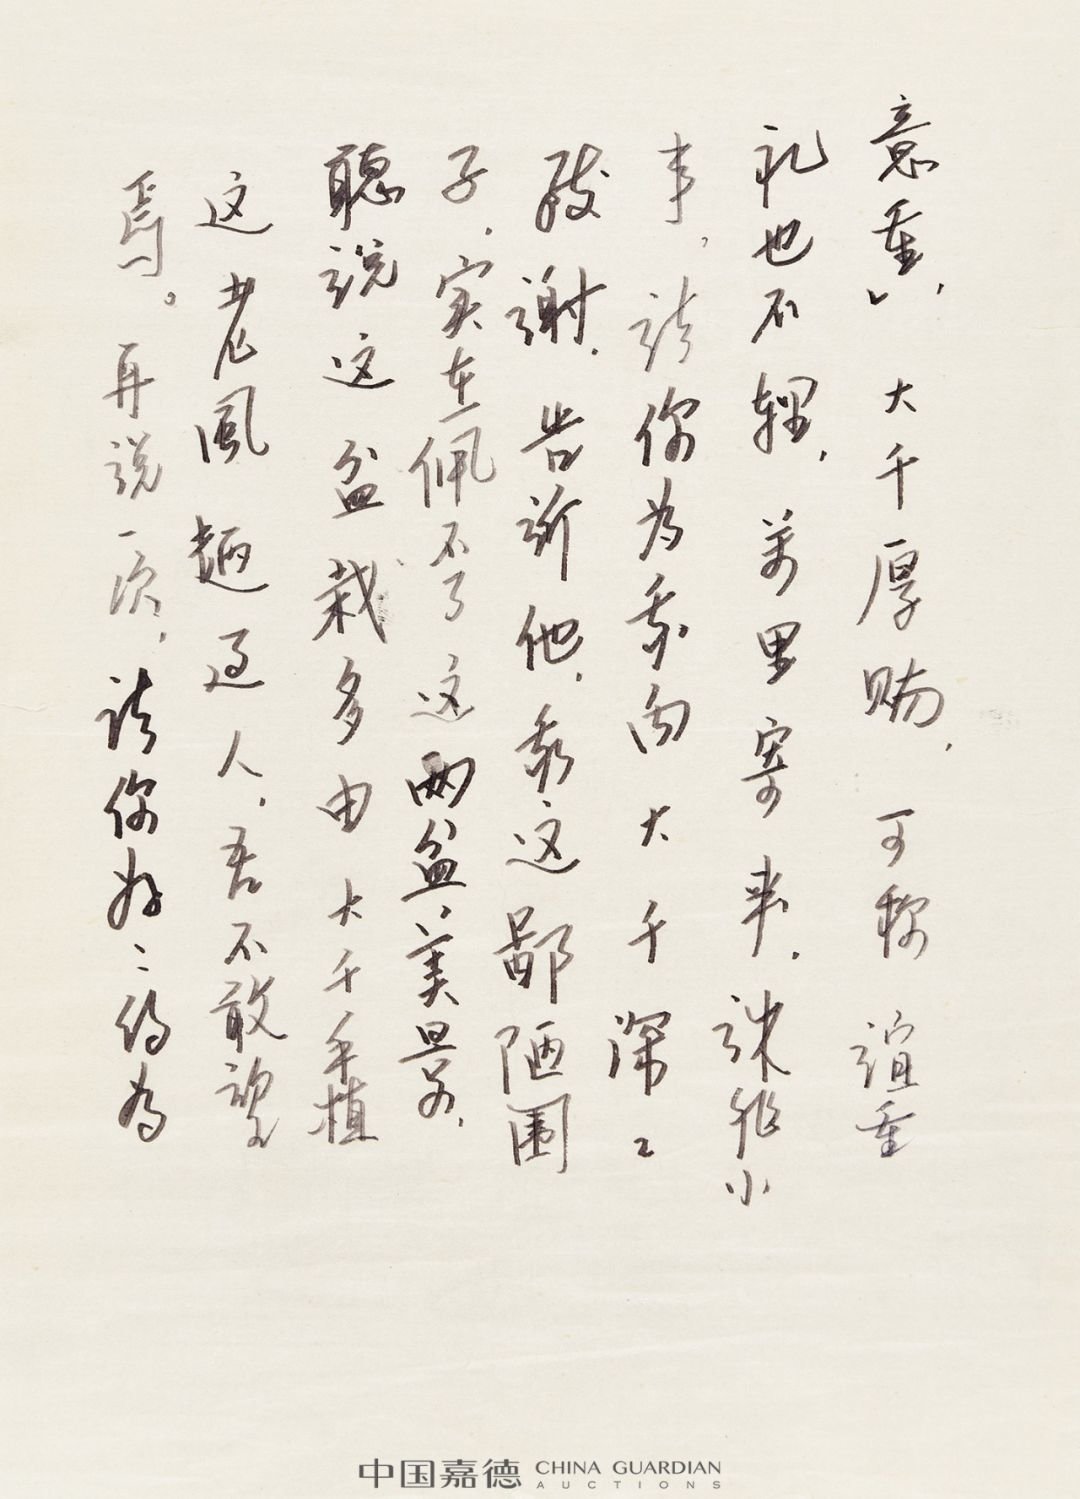 意重」，大千厚赐，可称谊重
礼也不輕，万里寄来，誅非小
事，请你为我向大千深〻
致谢，告诉他，我这鄙陋圃
子，实在佩不了这两盆美景，
聽説这盆栽多由大千手植
这老風趣过人，吾不敢望
焉。再説一次，请你好〻的为
中国嘉德 CHINA GUARDIAN
AUCTIONS